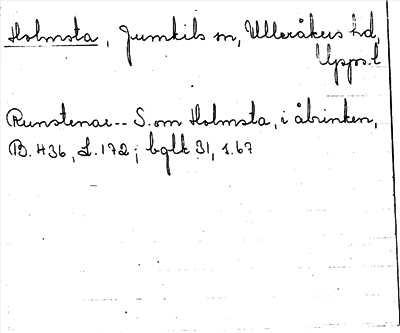 Holmsta, Jumkils sn, Ulleråkers hd,
Upps.l
Runstenar-- S. om Holmsta, i åbrinken,
B. 436, L. 172; bglk 31, s. 67